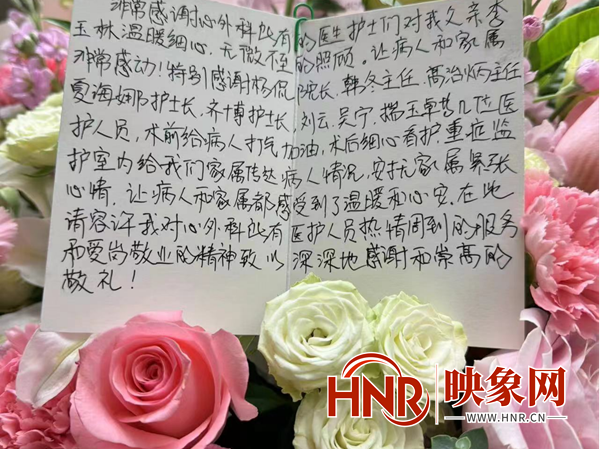 非常感谢心外科所有的医生护士们对我父亲李
玉林温暖细心、无微不至的照顾。让病人和家属
非常感动！特别感谢杨侃院长、韩冬主任、高治炳主任
夏海娜护士长、齐博护士长、刘云、吴宁、揣玉单等几位医
护人员，术前给病人打气加油，术后细心看护，重症监
护室内给我们家属传达病人情况，安抚家属紧张
心情，让病人和家属都感受到了温暖和心安。在此
请容许我对心外科所有医护人员热情周到的服务
和爱岗敬业的精神致以深深地感谢和崇高的
敬礼！
HNR 映象网
WWW.HNR.CN